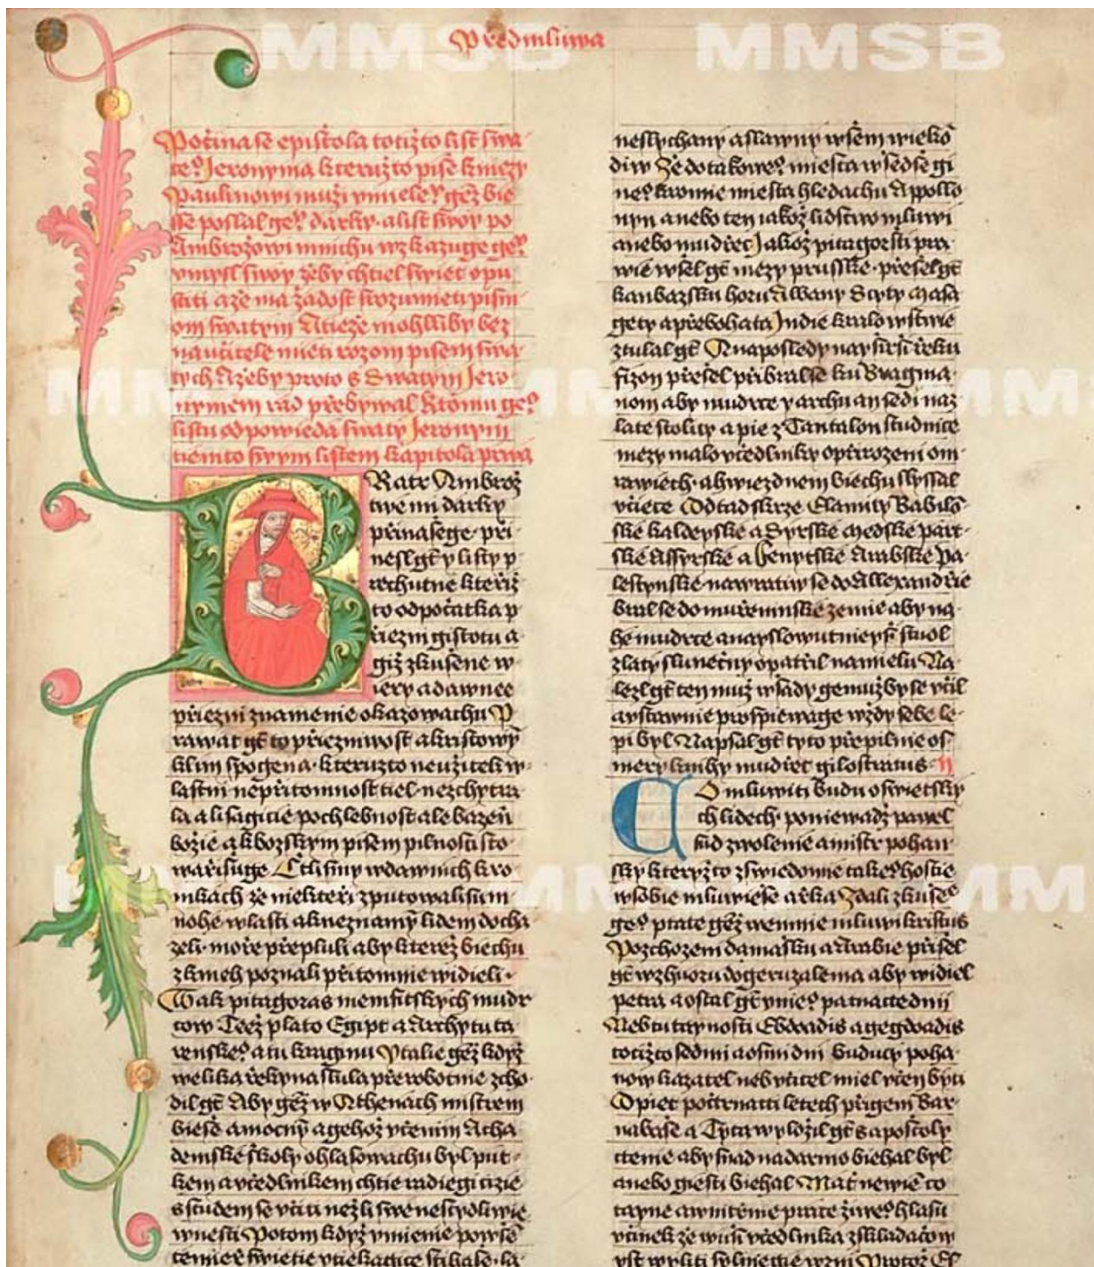 MMSB MMSB
Předmluwa
Počina se epistola točižto list swa
te° Jeronyma kteružto piše kniezy
Paulinowi muži vmiele° gež bie
sse poslal ge° darky a list swoy po
Ambrožowi mnichu wzkazuge ge°
vmysl swoy žeby chtiel swiet opu
stiti a že ma žadost srozumieti pism
om swatym A tieže mohlliby bez
naučitele mieti rozom pisem swa
tych A žeby proto s Swatym Jero
nymem rad přebywal k tomu ge°
listu odpowieda swaty Jeronym
tiemto swym listem kapitola prwa
Ratr Ambrož
twe mi darky
přinašege při
nesl gt y listy p
rechutne kteriž
to od počatka p
řiezni gistotu a
giž zkušene w
iery a dawnee
přiezni znamenie okazowachu P
rawat gt to přieznwost a kristowy
klim spogena kteruzto ne užitek w
lastni ne přitomnost tiel ne zchytra
la a lisagicie pochlebnost ale bazeň
božie a k božskym pisem pilnosti sto
wařisuge Ctli smy w dawnich kro
nikach že niekteři zputowali sum
nohe wlasti a k neznamym lidem docha
zeli moře přepluli aby kterež biechu
z knieh poznali přitomnie widieli
Tak pitagoras memfitskych mudr
cow Teež plato Egipt a Archytu ta
renske° a tu kraginu Vtalie gež kdyz
welika řekyn aslula prerobotnie zcho
dil gt Aby gež w Athenach mistrem
bieše a mocny a gehož včenim Acha
demske školy ohlasowachu byl put
kem a včedlnikem chtie radiegi cizie
s studem se včiti nežli swe nestydliwie
wnesti Potom kdyz vmienie powse
temieř swietie vtiekagice stihase
neslychany a slawny wšem wieko
diw že do takowe° miesta wšedše gi
ne° kromie miesta hledachu Appollo
nyn anebo ten iakož lidstwo mluwi
anebo mudřec Jakož pitagoresti pra
wie wšel gt mezy prusske přešel gt
kaukazsku horu Albany Scyty Masa
gety a přebohata Indie kralowstwie
ztulal gt A naposledy nayširši řeku
fizon přešel přibral se ku Bragma
nom aby mudrce yarchu an sedi na z
late stolicy a pie z Tantalon studnice
mezy malo včedlniky o přirozeni o m
rawiech a hwiezdnem biechu slyssal
včiece Odtad skrze Elamity Babilo
ske kaldeyske a Syrske Medske part
ske Assyrske a fenytske Arabske Pa
lestynske nawratiw se do Allexandrie
bral se do muřeninske zemie aby na
he mudrce a nayslowutnieyši stuol
zlaty slunečny opatřil na mielu Na
lezl gt ten muž wšady gemužby se včil
a ystawnie prospiewage wždy sebe le
pi byl Napsal gt tyto přepilnie os
mery knihy mudřec filostratus II
Co mluwiti budu o swietsky
ch lidech poniewadž pawel
sud zwolenie a mistr pohan
sky kteryžto z swiedomie take° hostie
w sobie mluwieše a řka Zdali zkuše
ge° ptate gež we mnie mluwi kristus
Po zchozeni damašku a Arabie přišel
gt wzhuoru do geruzalema aby widiel
petra a ostal gt v nie° patnacte dnij
Neb tu taynosti Ebdoadis a gegdoadis
točižto sedmi a osmi dni buducy poha
now kazatel neb včitel miel včen byti
O piet po čtrnacti letech přigem Bar
nabaše a Tyta wyložil gt s apostoly
čtenie aby snad nadarmo biehal byl
anebo giesti biehal Mat newie co
tayne a wnitrnie prace žiwe° hlasu
včinek že w uši včedlnika z skladačow